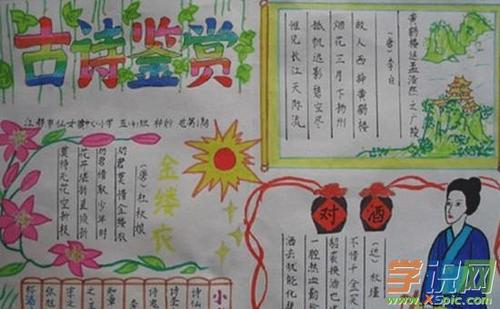 古诗鉴赏
黄鹤楼送孟浩然之广陵
(唐)李白
故人西辞黄鹤楼
烟花三月下扬州
孤帆远影碧空尽
惟见长江天际流
金缕衣
(唐)杜秋娘
劝君莫惜金缕衣
劝君惜取少年时
花开堪折直须折
莫待无花空折枝
对酒
(近)秋瑾
不惜千金买
貂裘换酒也
一腔热血勤
洒去犹能化
小
诗仙
诗圣
学识网
www.XSpic.com